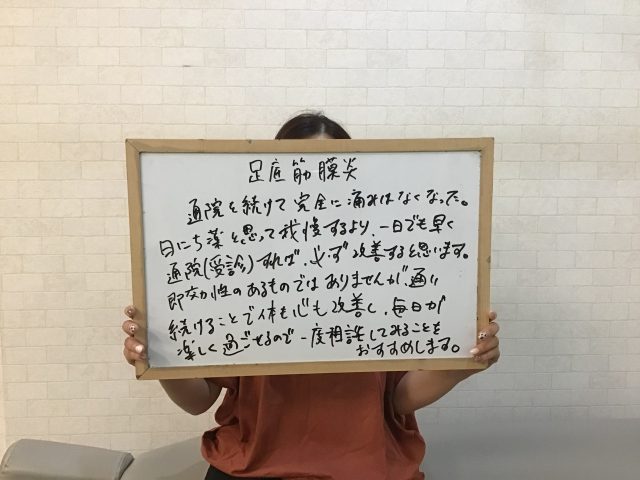 足底筋膜炎
通院を続けて完全に痛みはなくなった。
日にち薬と思って我慢するより、一日でも早く
通院(受診)すれば、必ず改善すると思います。
即効性のあるものではありませんが、通い
続けることで体も心も改善し、毎日が
楽しく過ごせるので一度相談してみることを
おすすめします。